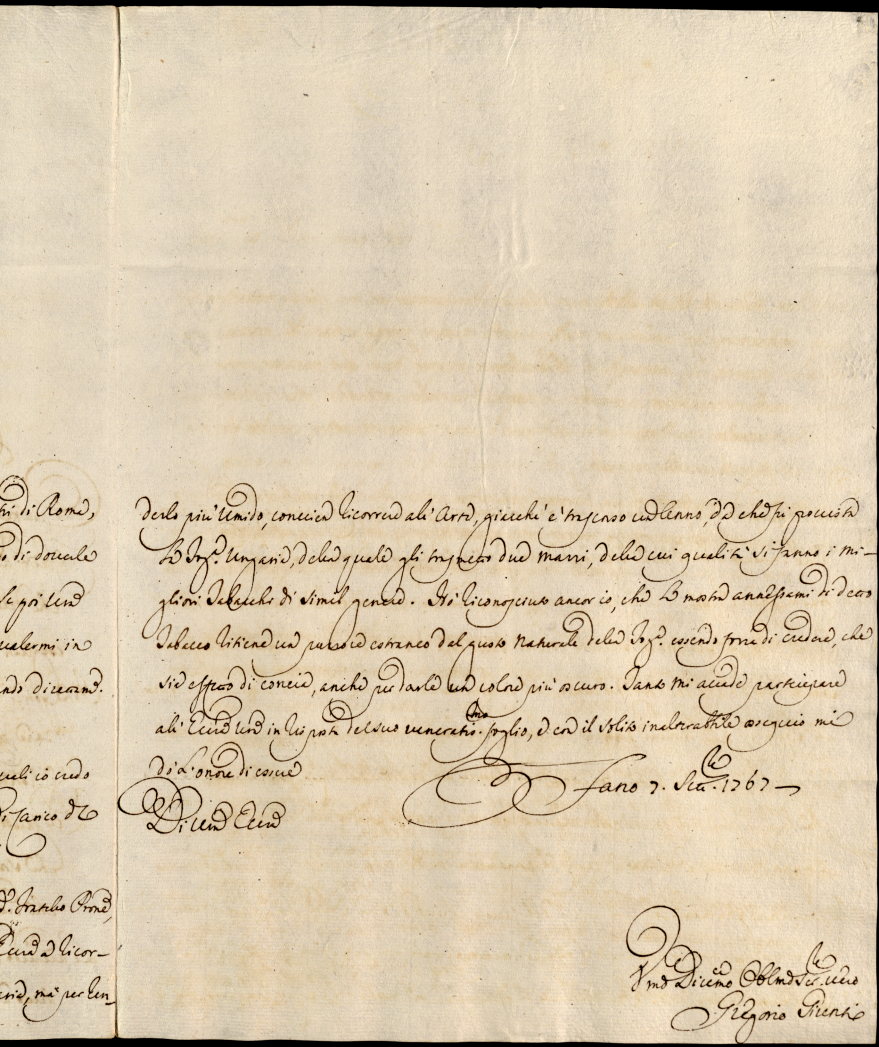 tri di Roma,
o di dovere
se poi Vra
valermi in
ando dicerame.
quali io credo
di carico di
fratello
Ecc.a a ricor-
ma per ren-
derlo più umido, convien ricorrere all'Arte, giacchè è trascorso un'Anno, da che fu
la Fog.a Ungara, della quale gli trasmetto due mazzi, della cui qualità si fanno i mi-
gliori Tabacchi di simil genere. Hò riconosciuto ancor io, che la mostra annessami di detto
Tabacco ritiene un estraneo dal gusto naturale della Fog.a essendo forse di credere, che
sia effetto di concia, anche per darle un colore più oscuro. Tanto mi accade partecipare
all'Ecc.a Vra in risposta del suo veneratis.mo foglio, e con il solito inalterabile ossequio mi
dò l'onore di essere
Di Vra Ecc.a
Fano 7. Sett.e 1767
Vmo Obblmo Ser.re vero
Gregorio